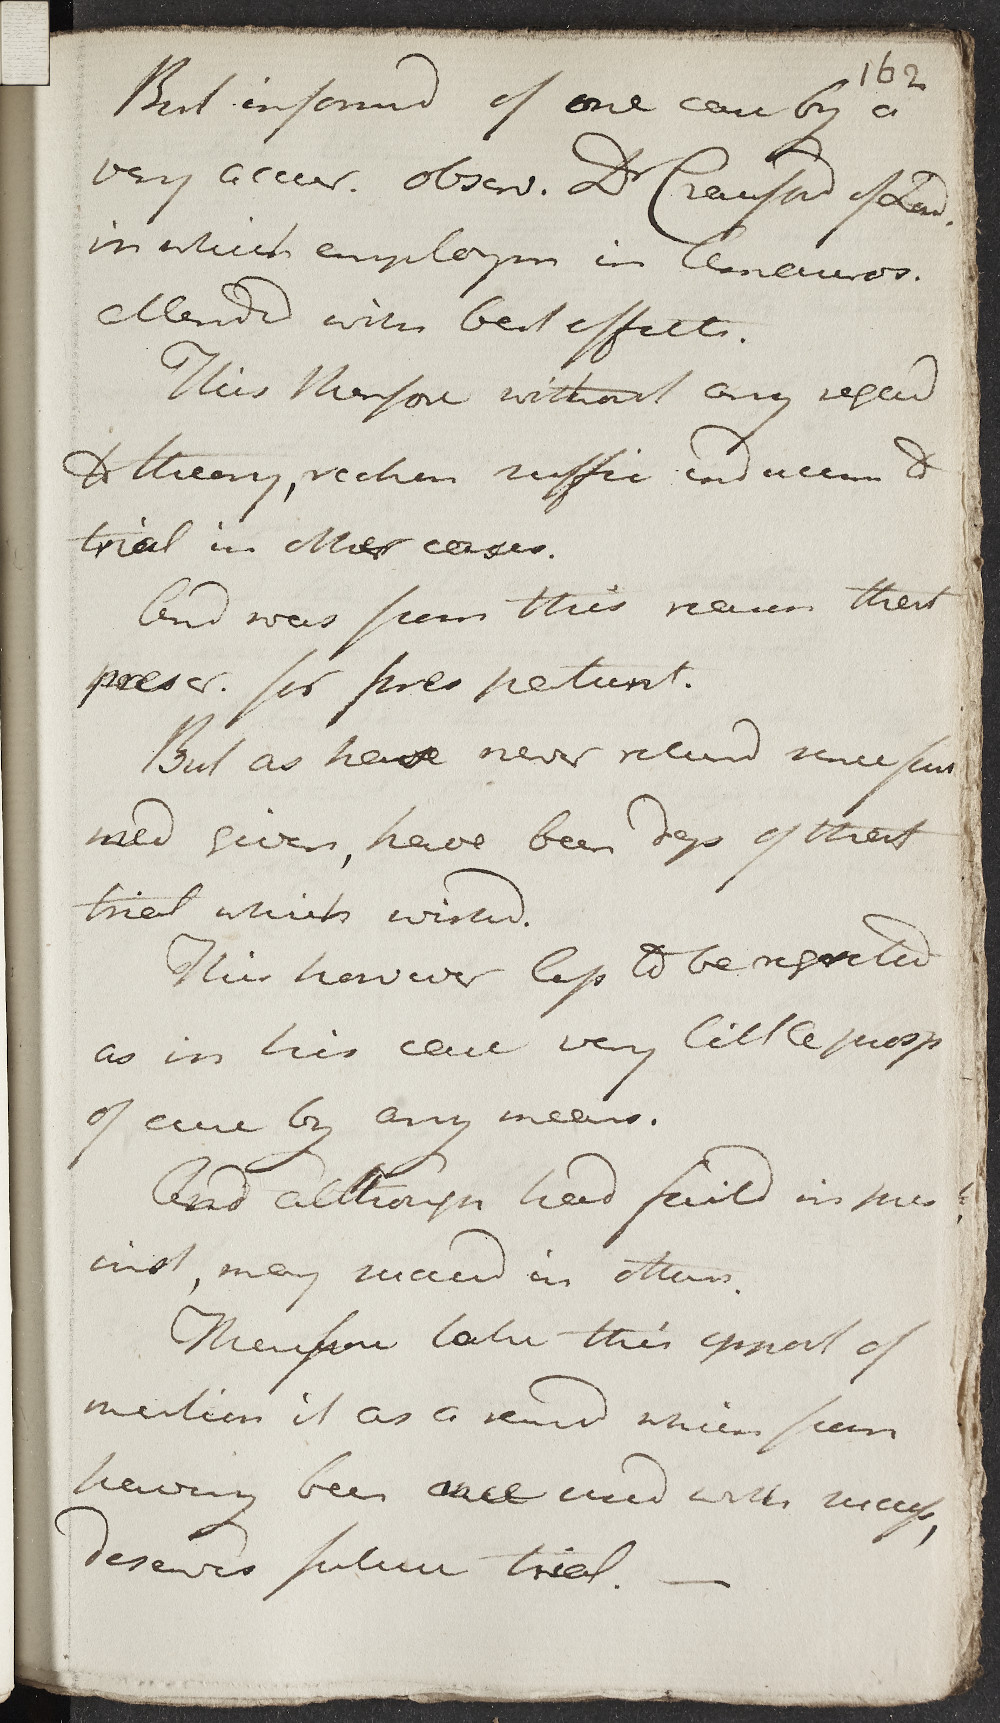 162
But informd of one case by a
very accur. observ. Dr Craufurd of Lond.
in which employm in Amauros.
attended with best effects.
This therefore without any regard
to theory, reckon suffic inducem to
trial in other cases.
And was from this reason that
prescr. for pres patient.
But as have never returnd since first
med given, have been dep of that
trial which wishd.
This however less to be regretted
as in his case very little prosp
of cure by any means.
And although had faild in pres
inst, may succeed in others.
Therefore take this opport of
mention it as a remed which from
having been once used with success,
deserves future trial. —